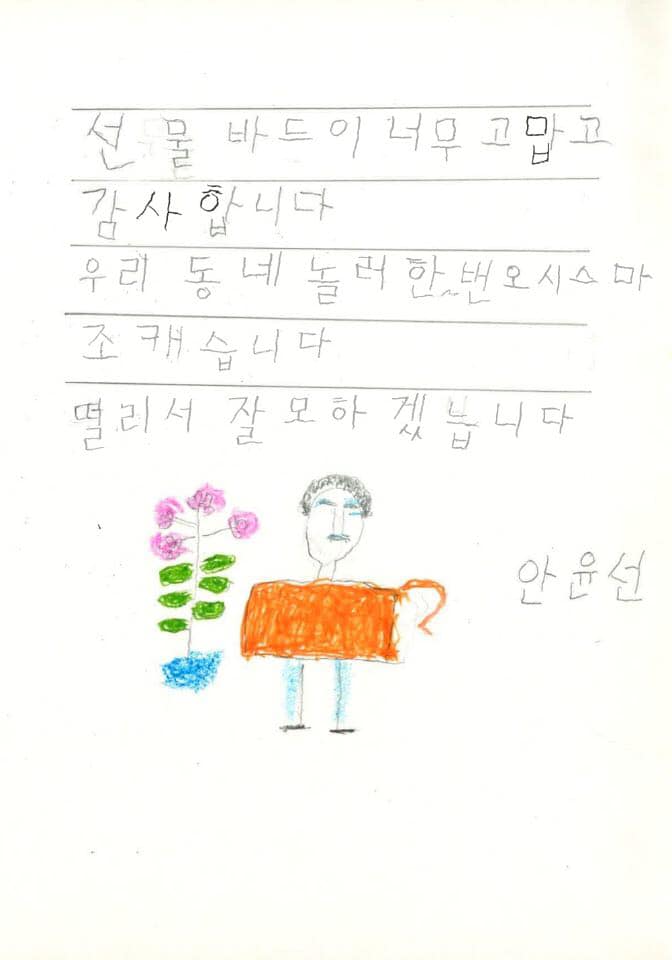 선물 바드이 너무 고맙고
감사 합니다
우리 동네 놀러 한 밴 오시스마
조캐습니다
떨리서 잘 모하겠늡니다
안윤선